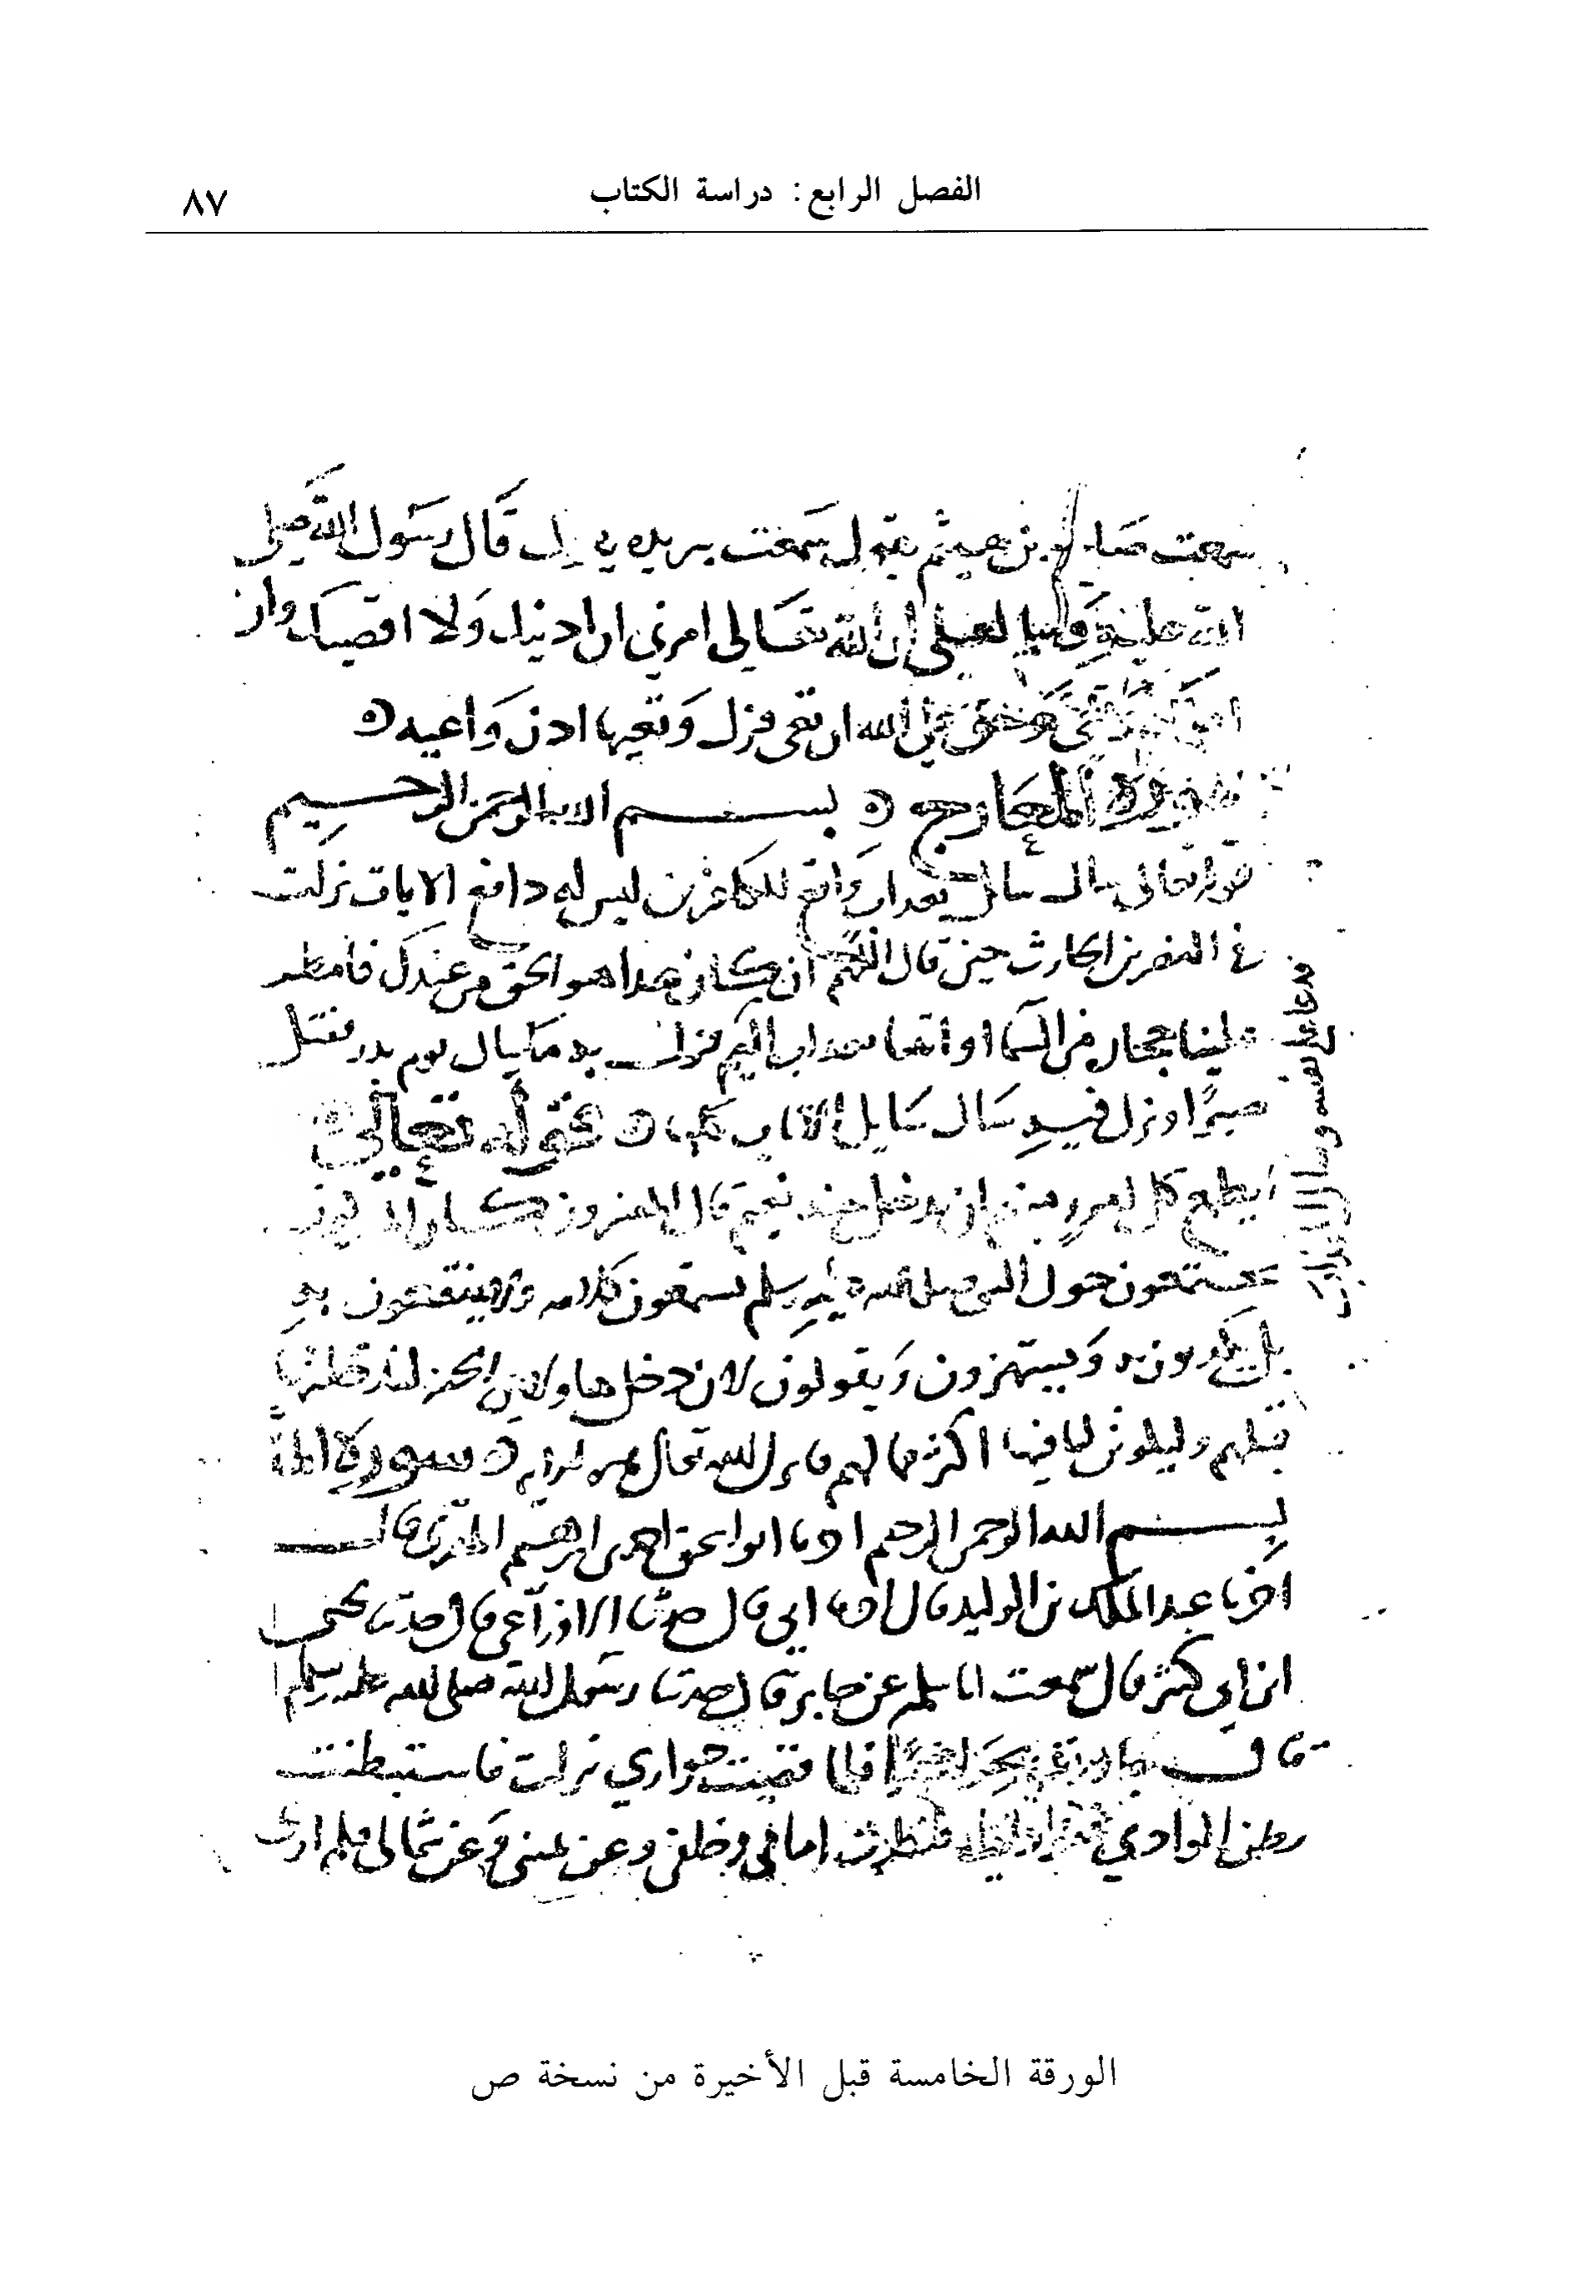 الفصل الرابع: دراسة الكتاب
٨٧
سمعت صالح بن هيثم يقول سمعت بريده يقول قال رسول الله صلى
الله عليه وسلم لعلي ان الله تعالى امرني ان ادنيك ولا اقصيك وان
وتعي وحق على الله ان تعي فنزل وتعيها اذن واعيه
سورة المعارج بسم الله الرحمن الرحيم
قوله تعالى سال سائل بعداب واقع للكافرين ليس له دافع الايات نزلت
في النضر بن الحارث حين قال اللهم ان كان هدا هو الحق من عندك فامطر
علينا حجار من السما او اتنا بعداب اليم فنزل به ما سال يوم بدر فقتل
صبرا ونزل فيه سال سايل الايات قوله تعالى
ايطمع كل امرئ منهم ان يدخل جنه نعيم قال المفسرون كان المشركون
يجتمعون حول النبي صلى الله عليه وسلم يسمعون كلامه ولا ينتفعون به
بل يكذبون به ويستهزون ويقولون لان دخل هاولاى الجنه لندخلنها
قبلهم وليكونن لنا فيها اكثر مما لهم فانزل الله تعالى سورة
بسم الله الرحمن الرحيم ابو اسحق احمد بن ابرهيم المقري قال
اخبرنا عبد الملك بن الوليد قال ابي قال حدثنا الاوزاعي قال حدثنا يحيى
ابن ابي كثير قال سمعت ابا سلمه عن جابر قال حدثنا رسول الله صلى الله عليه وسلم
قال جاورت بحرا شهرا فلما قضيت جواري نزلت فاستبطنت
بطن الوادي فنوديت فنظرت امامي وخلفي وعن يميني وعن شمالي فلم ارى
الورقة الخامسة قبل الأخيرة من نسخة ص